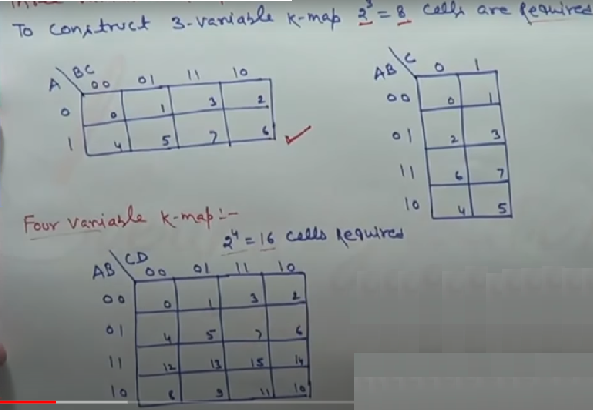 To construct 3-variable k-map 2³ = 8 cells are required
A \ BC 00 01 11 10
0 0 1 3 2
1 4 5 7 6 ✓
AB \ C 0 1
00 0 1
01 2 3
11 6 7
10 4 5
Four variable k-map:-
2⁴ = 16 cells required
AB \ CD 00 01 11 10
00 0 1 3 2
01 4 5 7 6
11 12 13 15 14
10 8 9 11 10